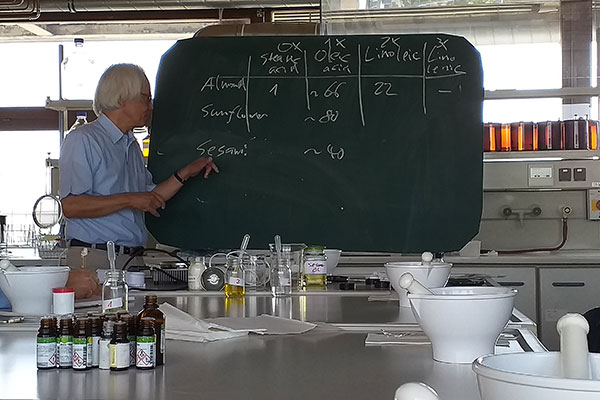 0x 1x 2x x
Stearic Oleic Linoleic Lino
acid acid lenic
Almond 1 ~66 22 -
Sunflower ~80
Sesami ~40